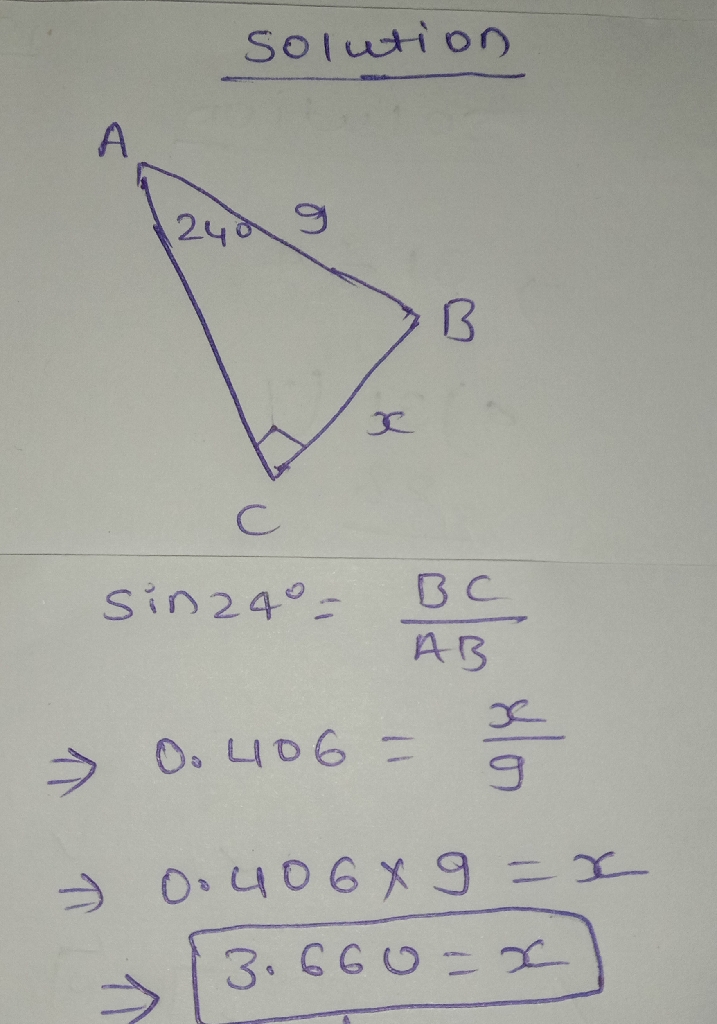 Solution
A
24° 9
B
x
C
sin24° = BC/AB
⇒ 0.406 = x/9
⇒ 0.406 × 9 = x
⇒ 3.660 = x